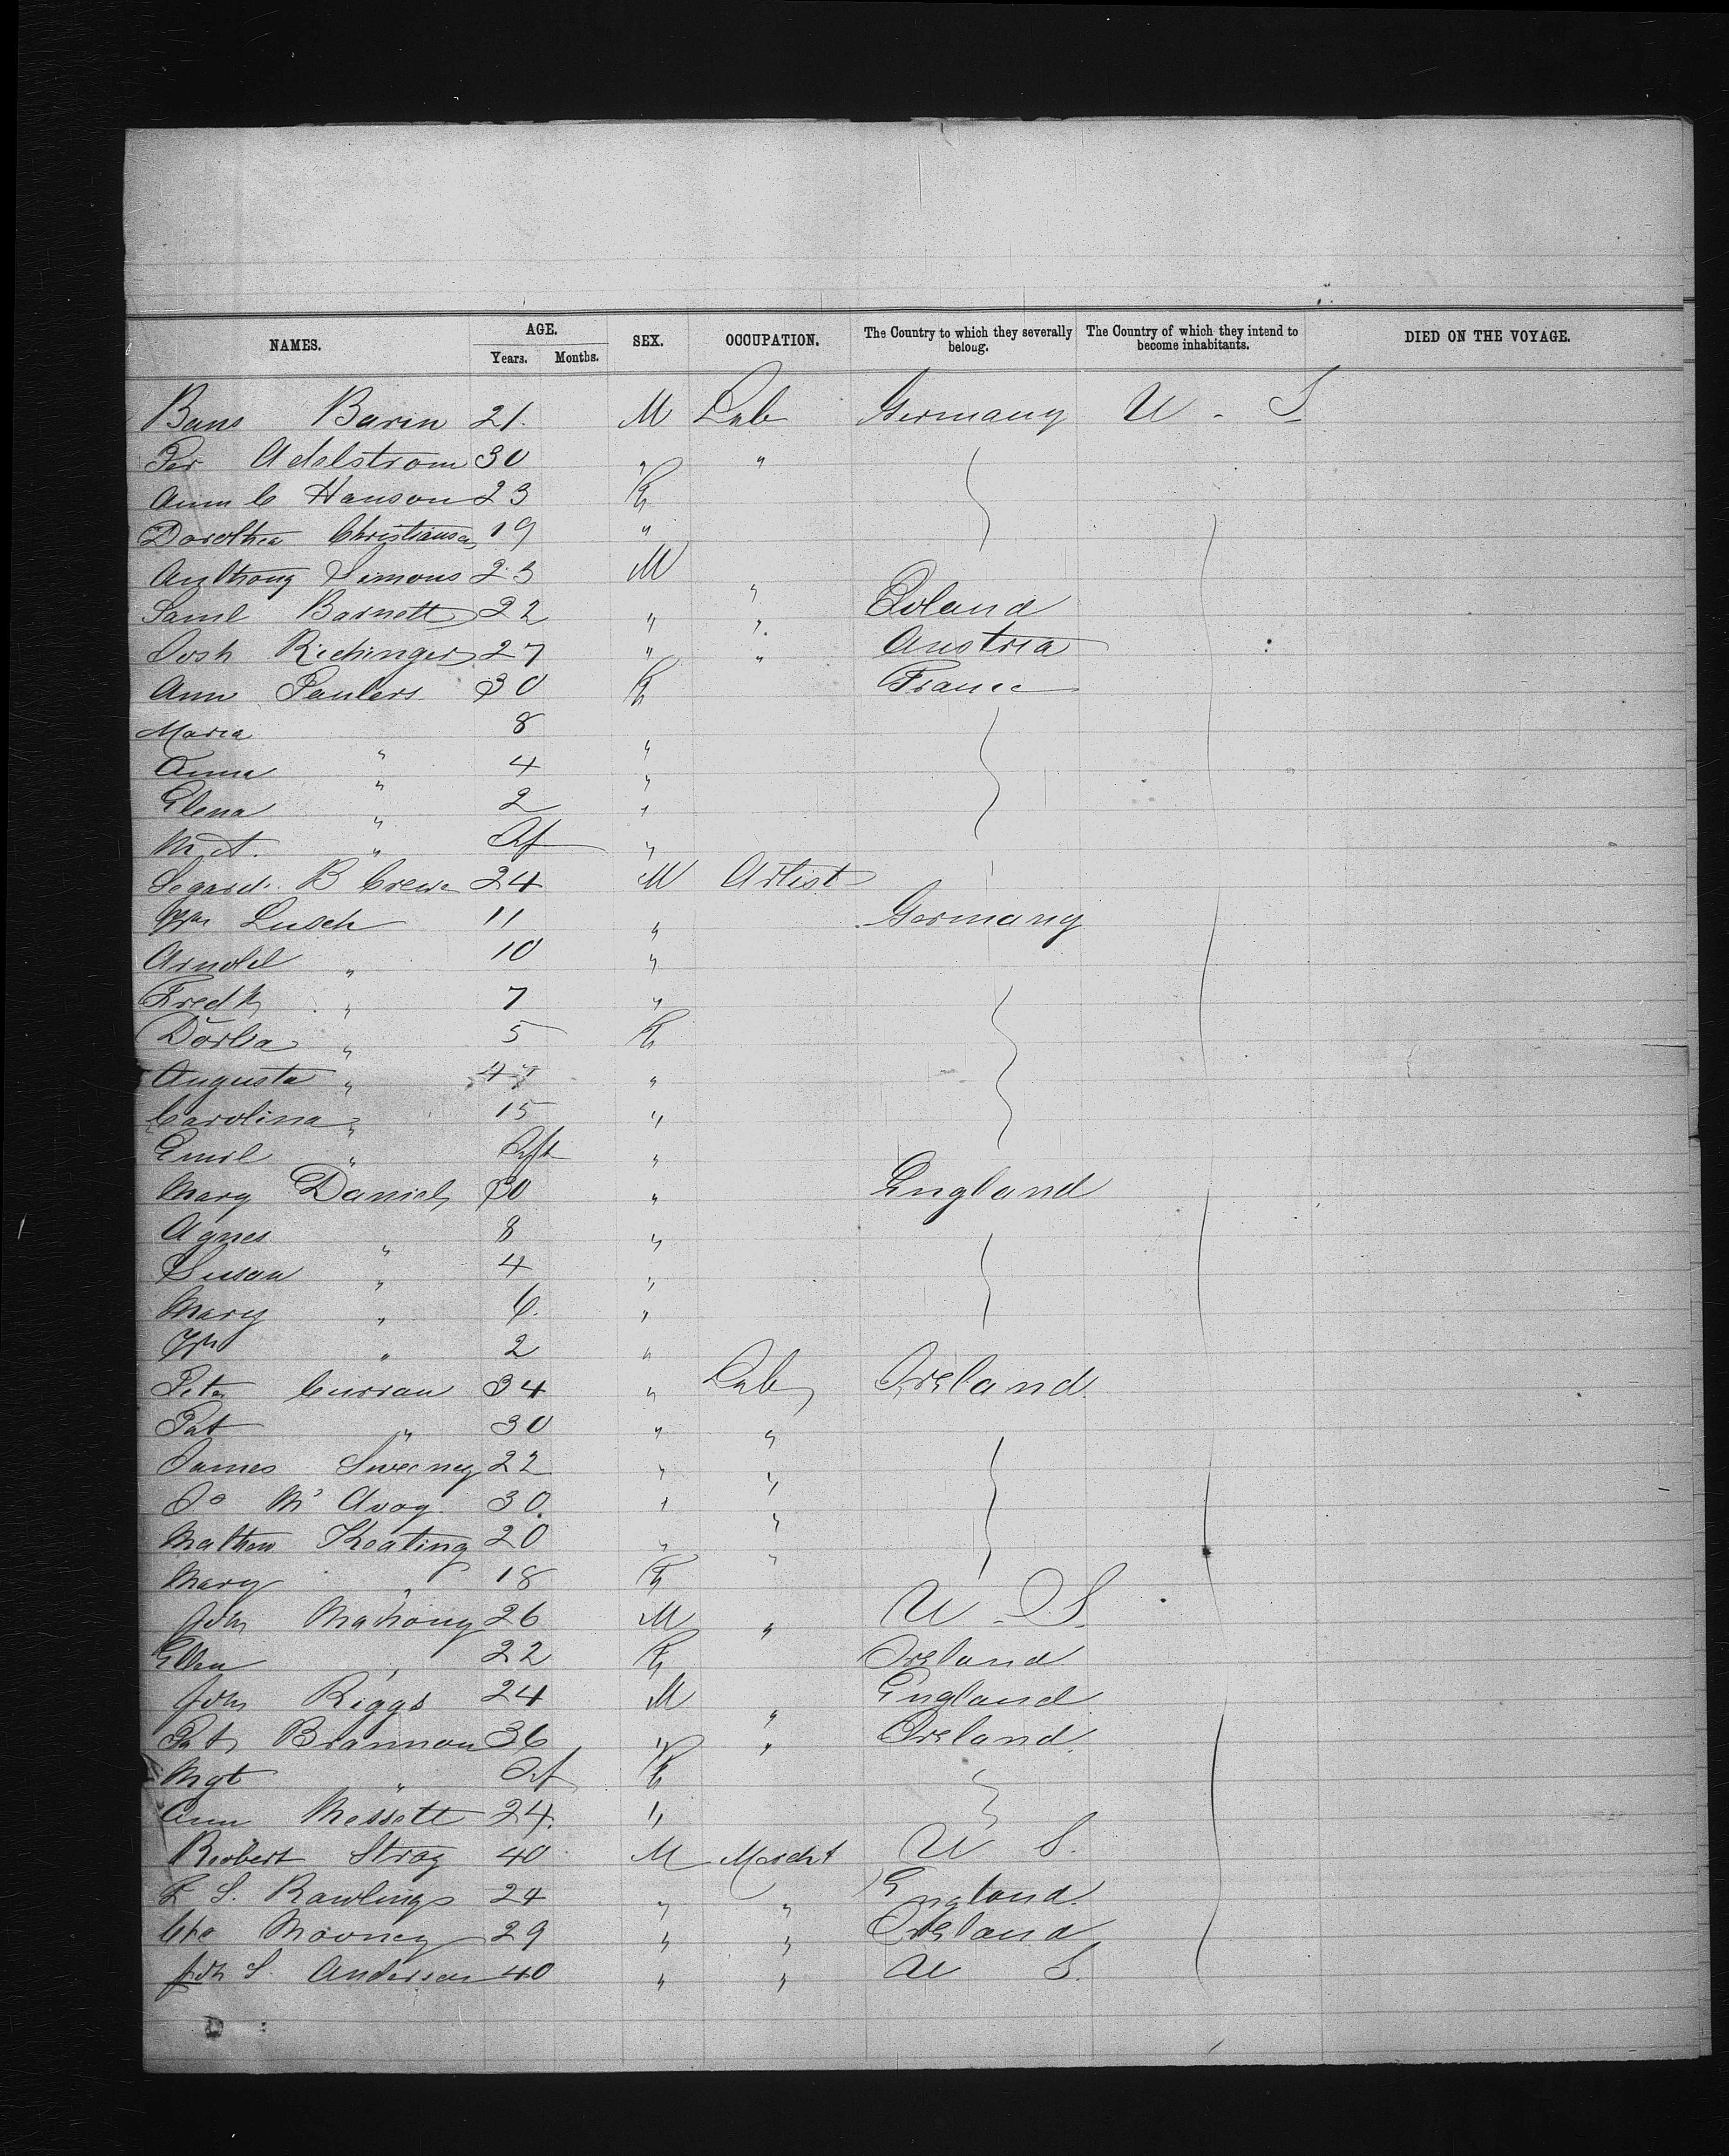 NAMES. AGE. SEX. OCCUPATION. The Country to which they severally belong. The Country of which they intend to become inhabitants. DIED ON THE VOYAGE.
Years. Months.
Bans Barin 21. M Lab Germany U. S.
Per Adelstrom 30 " "
Ann C Hanson 23 F
Dorothea Christiansen 19 "
Anthony Simons 23 M "
Saml Barnett 22 " " Poland
Josh Richinger 27 " " Austria
Ann Paulers 30 F France
Maria " 8 "
Anna " 4 "
Elena " 2 "
M. A. " Inf "
B Crewe 24 M Artist
Wm Lusch 11 " Germany
Arnold " 10 "
Fredk " 7 "
Dorba " 5 F
Augusta " 47 "
Carolina " 15 "
Emil " Inft "
Mary Daniels 30 " England
Agnes " 8 "
Susan " 4 "
Mary " 6. "
Wm " 2 "
Peter Curran 34 " Lab Ireland
Pat " 30 " "
James Sweeney 22 " "
Jo McAvoy 30. " "
Mathew Keating 20 " "
Mary " 18 F
John Mahony 26 M " U. S.
Ellen " 22 F Ireland
John Riggs 24 M " England
Pat Brannon 36 " " Ireland
Mgt " Inf F
Ann Messett 24. "
Robert Stray 40 M Mercht U S.
F S. Rawlings 24 " " England
Mooney 29 " " Ireland
John S. Anderson 40 " " U S.